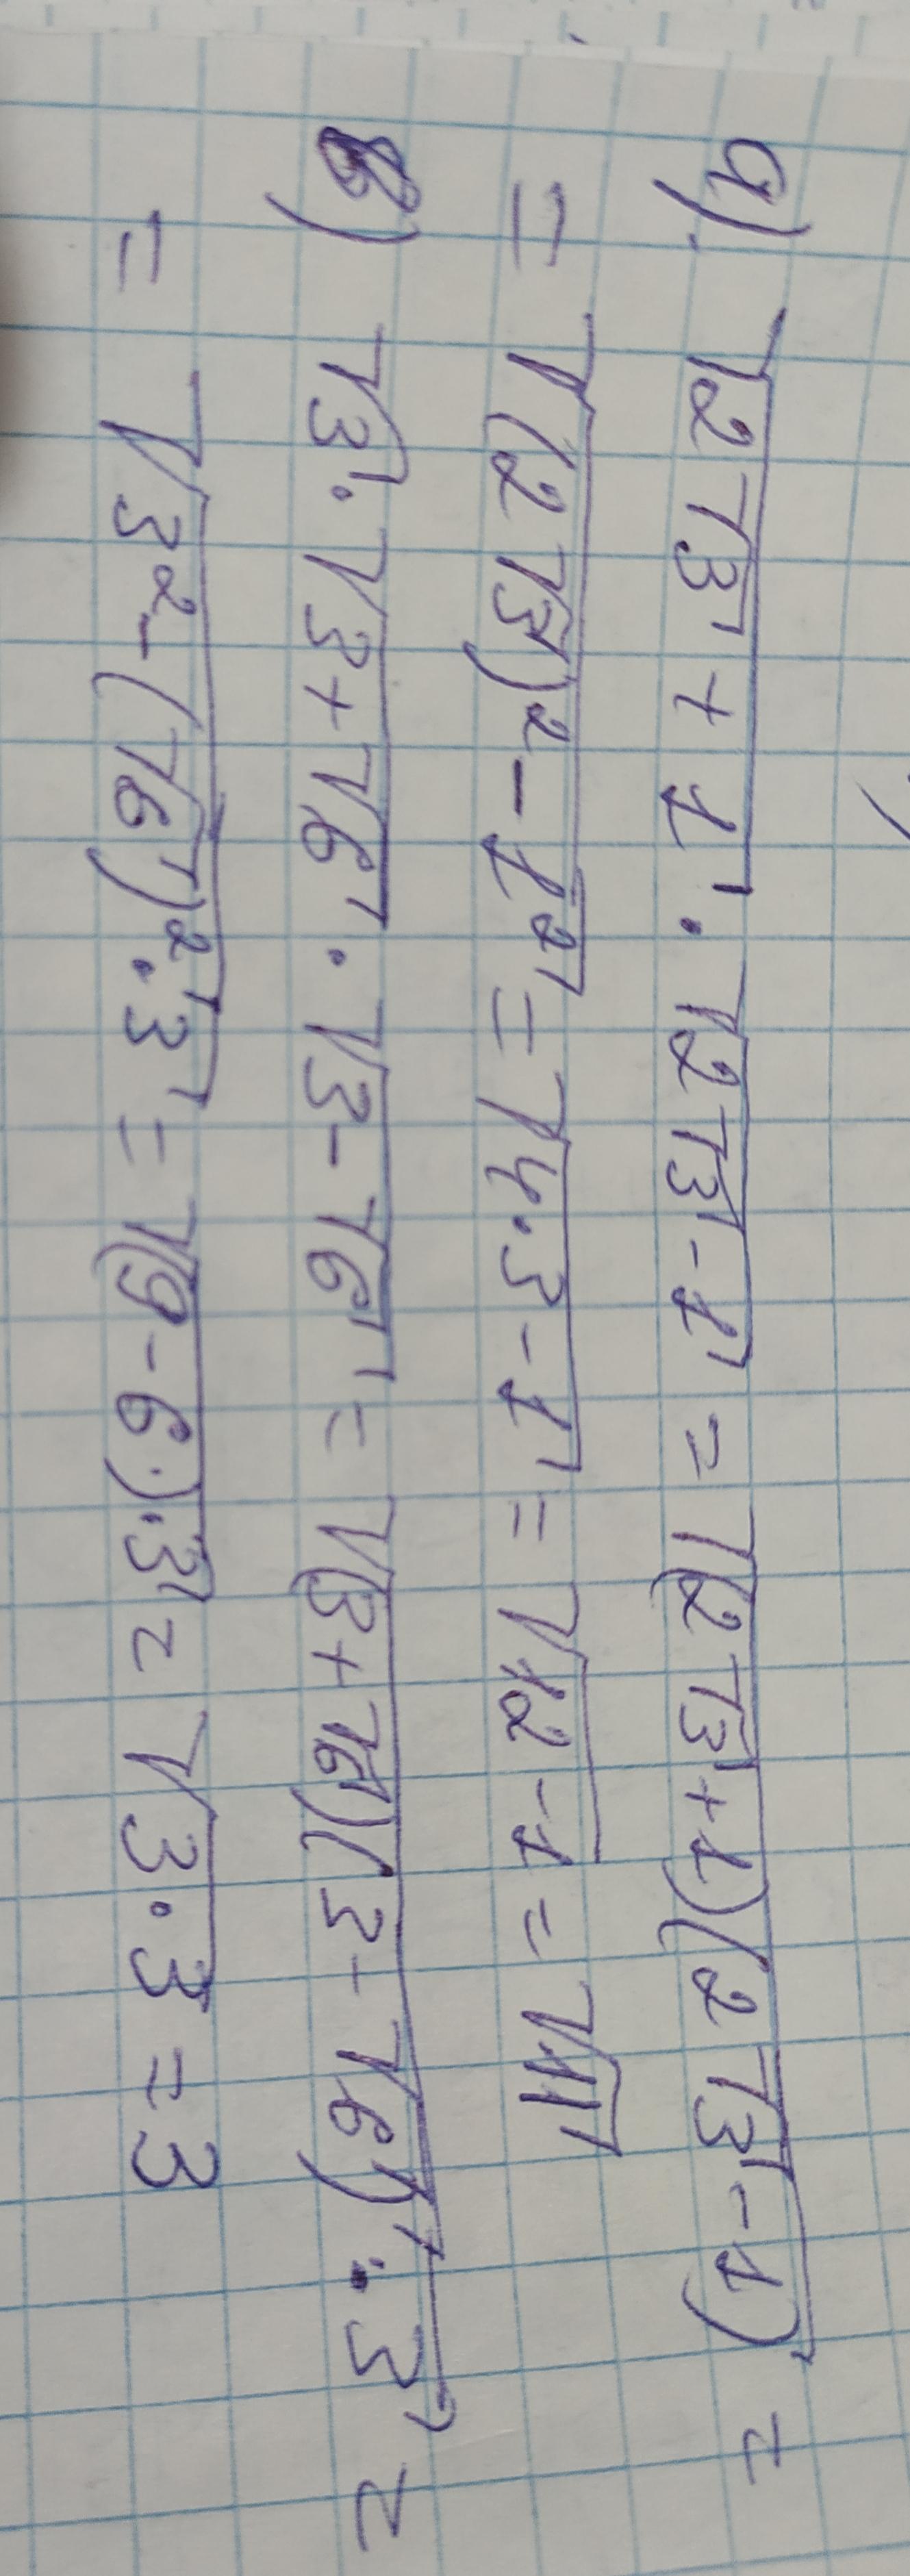 а). √(2√3 + 1) · √(2√3 - 1) = √((2√3 + 1)(2√3 - 1)) =
= √((2√3)² - 1²) = √(4·3 - 1) = √(12 - 1) = √11
в) √3 · √(3 + √6) · √(3 - √6) = √((3 + √6)(3 - √6) · 3) =
= √(3² - (√6)² · 3) = √((9 - 6) · 3) = √(3 · 3) = 3